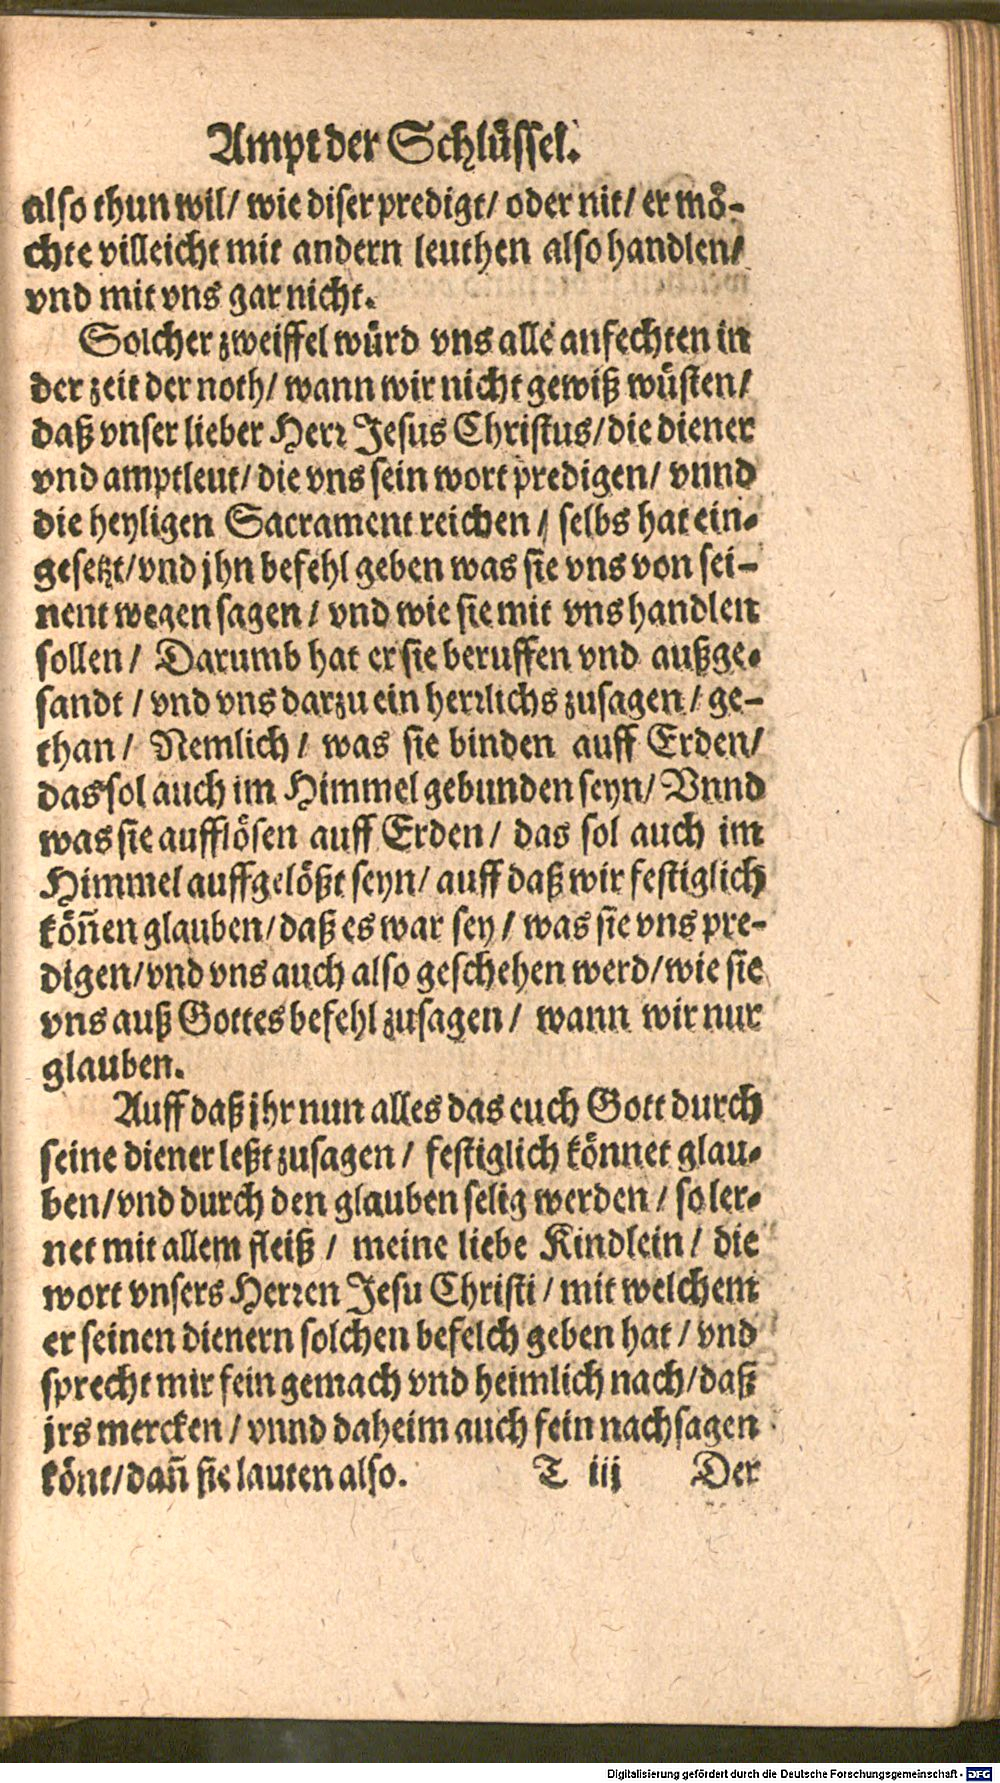 Ampt der Schlüssel.
also thun wil/ wie diser predigt/ oder nit/ er mö-
chte villeicht mit andern leuthen also handlen/
vnd mit vns gar nicht.
Solcher zweiffel würd vns alle anfechten in
der zeit der noth/ wann wir nicht gewiß wüsten/
daß vnser lieber Herr Jesus Christus/ die diener
vnd amptleut/ die vns sein wort predigen/ vnnd
die heyligen Sacrament reichen/ selbs hat ein-
gesetzt/ vnd jhn befehl geben was sie vns von sei-
nent wegen sagen/ vnd wie sie mit vns handlen
sollen/ Darumb hat er sie beruffen vnd außge-
sandt/ vnd vns darzu ein herrlichs zusagen/ ge-
than/ Nemlich/ was sie binden auff Erden/
das sol auch im Himmel gebunden seyn/ Vnnd
was sie aufflösen auff Erden/ das sol auch im
Himmel auffgelößt seyn/ auff daß wir festiglich
köñen glauben/ daß es war sey/ was sie vns pre-
digen/ vnd vns auch also geschehen werd/ wie sie
vns auß Gottes befehl zusagen/ wann wir nur
glauben.
Auff daß jhr nun alles das euch Gott durch
seine diener leßt zusagen/ festiglich könnet glau-
ben/ vnd durch den glauben selig werden/ so ler-
net mit allem fleiß/ meine liebe Kindlein/ die
wort vnsers Herren Jesu Christi/ mit welchem
er seinen dienern solchen befelch geben hat/ vnd
sprecht mir fein gemach vnd heimlich nach/ daß
jrs mercken/ vnnd daheim auch fein nachsagen
könt/ dañ sie lauten also. T iij Der
Digitalisierung gefördert durch die Deutsche Forschungsgemeinschaft - DFG